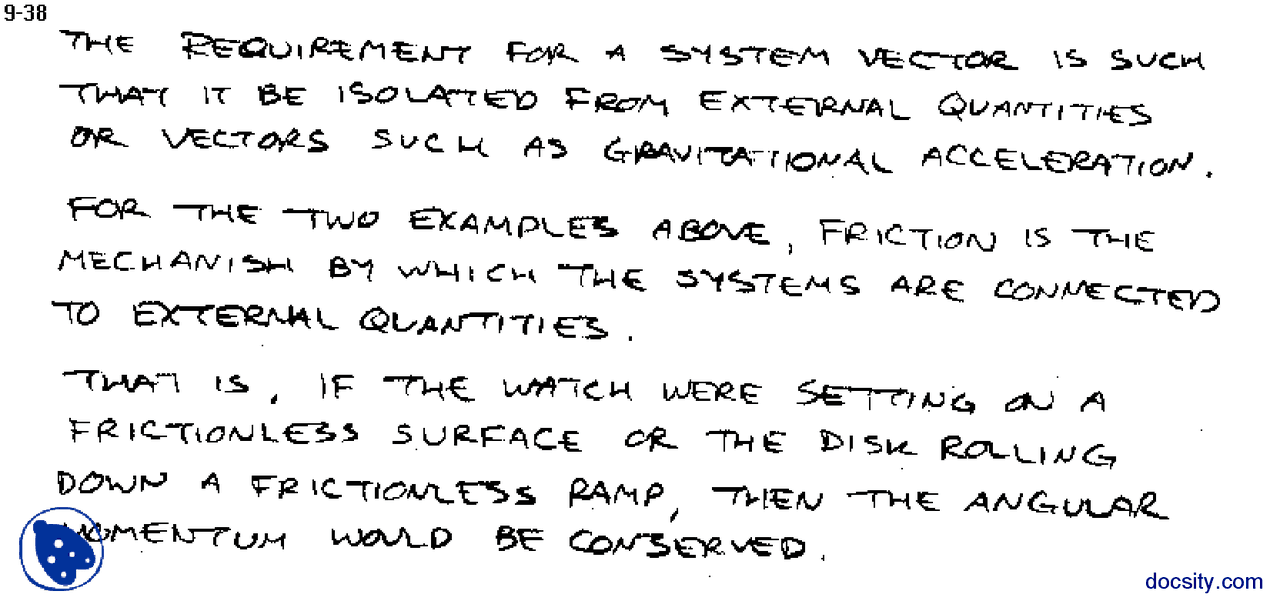 9-38
THE REQUIREMENT FOR A SYSTEM VECTOR IS SUCH
THAT IT BE ISOLATED FROM EXTERNAL QUANTITIES
OR VECTORS SUCH AS GRAVITATIONAL ACCELERATION.
FOR THE TWO EXAMPLES ABOVE, FRICTION IS THE
MECHANISM BY WHICH THE SYSTEMS ARE CONNECTED
TO EXTERNAL QUANTITIES.
THAT IS, IF THE WATCH WERE SETTING ON A
FRICTIONLESS SURFACE OR THE DISK ROLLING
DOWN A FRICTIONLESS RAMP, THEN THE ANGULAR
MOMENTUM WOULD BE CONSERVED.
docsity.com